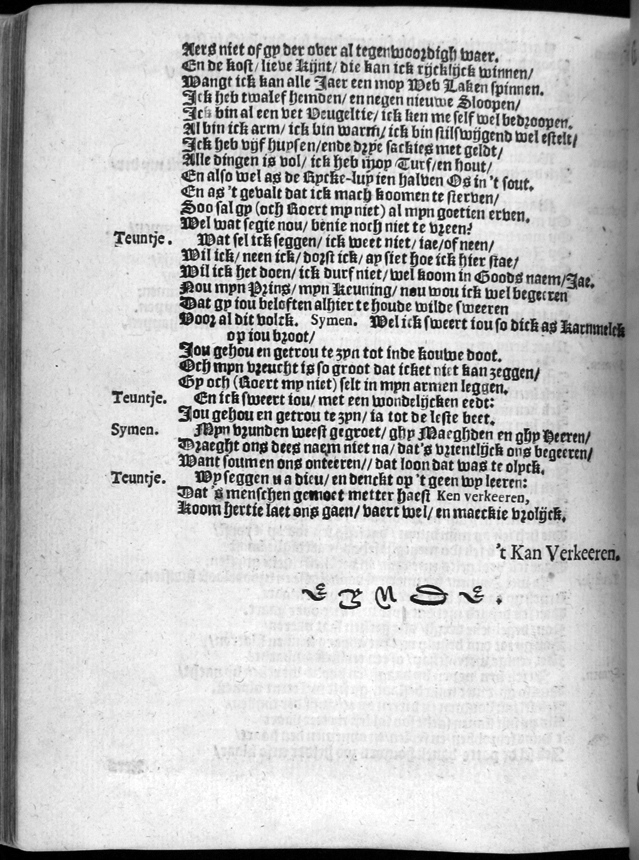 Aers niet of gy der over al tegenwoordigh waer.
En de kost/ lieve Kijnt/ die kan ick rijcklijck winnen/
Wangt ick kan alle Jaer een mop Web Laken spinnen.
Ick heb twalef hemden/ en negen nieuwe Sloopen/
Ick bin al een vet Veugeltie/ ick ken me self wel bedroopen.
Al bin ick arm/ ick bin warm/ ick bin stilswijgend wel estelt/
Ick heb vijf huysen/ ende drye sackies met geldt/
Alle dingen is vol/ ick heb mooy Turf/ en hout/
En also wel as de Rycke-luy ien halven Os in 't sout.
En as 't gevalt dat ick mach koomen te sterven/
Soo sal gy (och Roert my niet) al myn goetien erven.
Wel wat segie nou/ benie noch niet te vreen?
Teuntje. Wat sel ick seggen/ ick weet niet/ iae/ of neen/
Wil ick/ neen ick/ dorst ick/ ay siet hoe ick hier stae/
Wil ick het doen/ ick durf niet/ wel koom in Goods naem/ Jae.
Nou myn Prins/ myn Keuning/ nou wou ick wel begeeren
Dat gy iou beloften alhier te houde wilde sweeren
Voor al dit volck. Symen. Wel ick sweert iou so dick as Karmmelck
op iou broot/
Jou gehou en getrou te zyn tot inde kouwe doot.
Och myn vreucht is so groot dat icket niet kan zeggen/
Gy och (Roert my niet) selt in myn armen leggen.
Teuntje. En ick sweert iou/ met een wondelijcken eedt:
Jou gehou en getrou te zyn/ ia tot de leste beet.
Symen. Myn vrunden weest gegroet/ ghy Maeghden en ghy Heeren/
Draeght ons dees naem niet na/ dat's vrientlijck ons begeeren/
Want sou men ons onteeren// dat loon dat was te olyck.
Teuntje. Wy seggen u a dieu/ en denckt op 't geen wy leeren:
Dat 's menschen gemoet metter haest Ken verkeeren,
Koom hertie laet ons gaen/ vaert wel/ en maeckie vrolijck.
't Kan Verkeeren.
EYNDE.